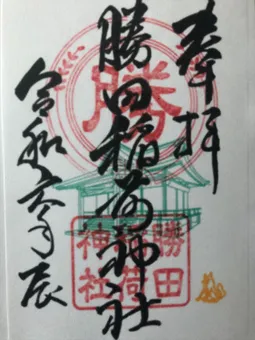 奉拝
勝
勝田稲荷神社
令和六年辰
勝田
稲荷
神社